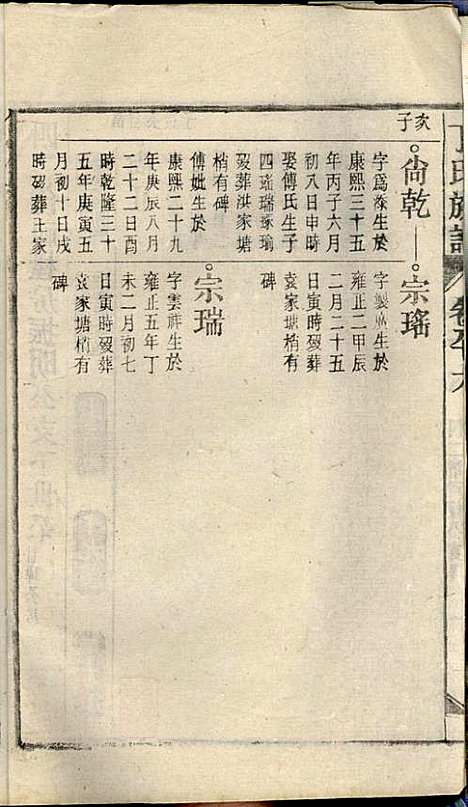 丁氏族譜
亥子
尙乾
字爲滌生於
康熙三十五
年丙子六月
初八日申時
娶傅氏生子
四瑤瑞琢瑜
歿葬洪家塘
梢有碑
傅妣生於
康熙二十九
年庚辰八月
二十二日酉
時乾隆三十
五年庚寅五
月初十日戌
時歿葬王家
宗瑤
生於
雍正二甲辰
二月二十五
日寅時歿葬
袁家塘梢有
碑
宗瑞
字雲祥生於
雍正五年丁
未二月初七
日寅時歿葬
袁家塘梢有
碑